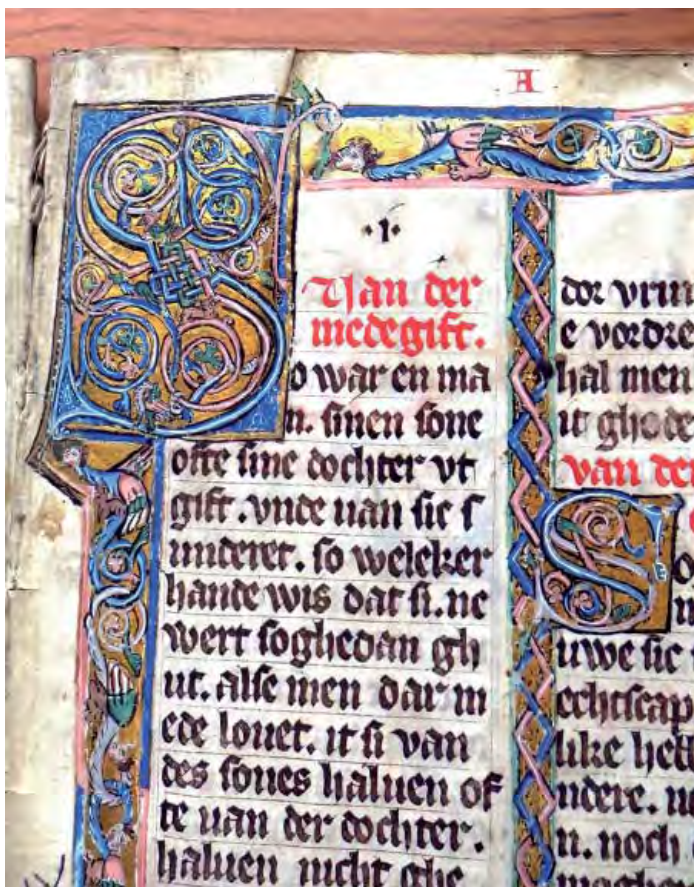 A
·1·
Van der
medegift.
So war en ma
n. sinen sone
ofte sine dochter vt
gift. vnde uan sic s
underet. so weleker
hande wis dat si. ne
wert soghedan gh
ut. alse men dar m
ede louet. it si van
des sones haluen of
te uan der dochter.
haluen nicht ghe
dor
e vordre
hal men
ut ghode
van der
S
uwe sic
echtscap
like
ndere.
n. noch